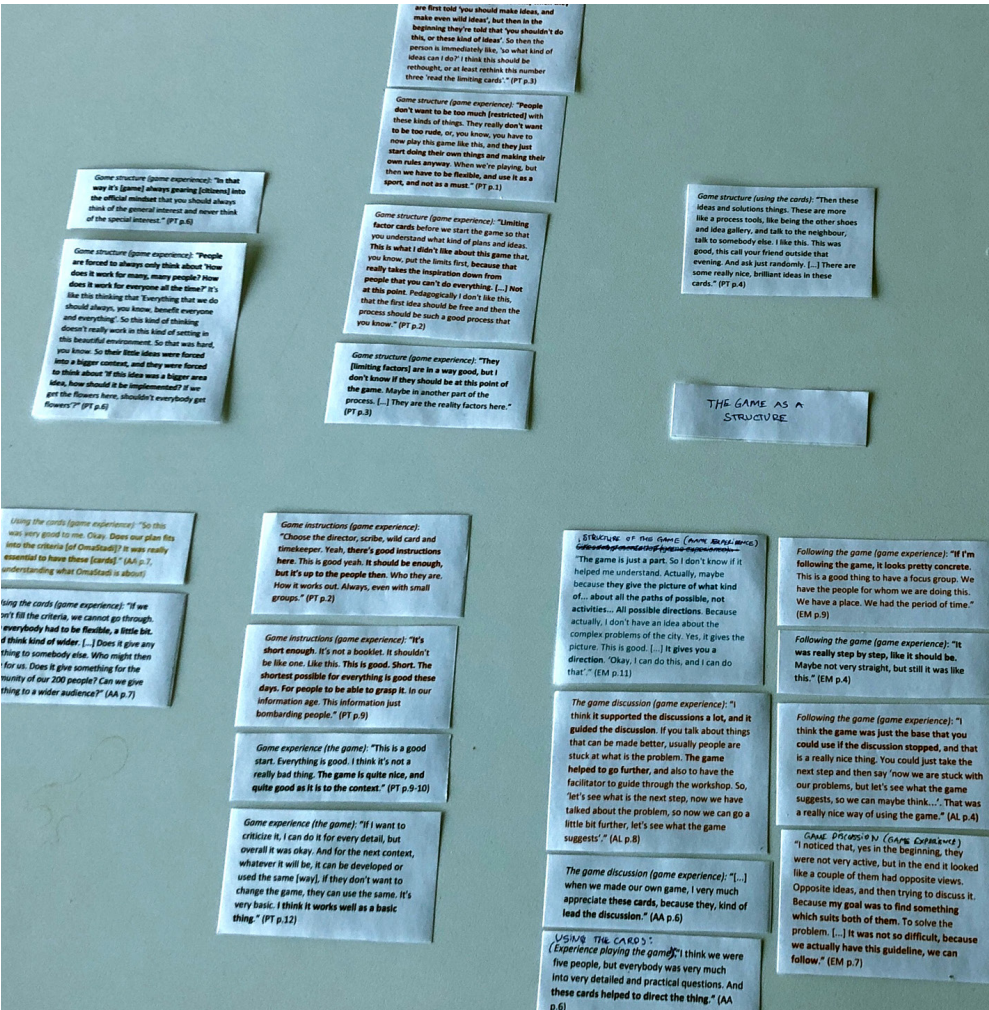 are first told 'you should make ideas, and
make even wild ideas', but then in the
beginning they're told that 'you shouldn't do
this, or these kind of ideas'. So then the
person is immediately like, 'so what kind of
ideas can I do?' I think this should be
rethought, or at least rethink this number
three 'read the limiting cards'." (PT p.3)
Game structure (game experience): "People
don't want to be too much [restricted] with
these kinds of things. They really don't want
to be too rude, or, you know, you have to
now play this game like this, and they just
start doing their own things and making their
own rules anyway. When we're playing, but
then we have to be flexible, and use it as a
sport, and not as a must." (PT p.1)
Game structure (game experience): "In that
way it's [game] always gearing [citizens] into
the official mindset that you should always
think of the general interest and never think
of the special interest." (PT p.6)
Game structure (game experience): "People
are forced to always only think about 'How
does it work for many, many people? How
does it work for everyone all the time?' It's
like this thinking that 'Everything that we do
should always, you know, benefit everyone
and everything'. So this kind of thinking
doesn't really work in this kind of setting in
this beautiful environment. So that was hard,
you know. So their little ideas were forced
into a bigger context, and they were forced
to think about 'If this idea was a bigger area
idea, how should it be implemented? If we
get the flowers here, shouldn't everybody get
flowers'?" (PT p.6)
Game structure (game experience): "Limiting
factor cards before we start the game so that
you understand what kind of plans and ideas.
This is what I didn't like about this game that,
you know, put the limits first, because that
really takes the inspiration down from
people that you can't do everything. [...] Not
at this point. Pedagogically I don't like this,
that the first idea should be free and then the
process should be such a good process that
you know." (PT p.2)
Game structure (game experience): "They
[limiting factors] are in a way good, but I
don't know if they should be at this point of
the game. Maybe in another part of the
process. [...] They are the reality factors here."
(PT p.3)
Game structure (using the cards): "Then these
ideas and solutions things. These are more
like a process tools, like being the other shoes
and idea gallery, and talk to the neighbour,
talk to somebody else. I like this. This was
good, this call your friend outside that
evening. And ask just randomly. [...] There are
some really nice, brilliant ideas in these
cards." (PT p.4)
THE GAME AS A
STRUCTURE
Using the cards (game experience): "So this
was very good to me. Okay. Does our plan fits
into the criteria [of OmaStadi]? It was really
essential to have these [cards]." (AA p.7,
understanding what OmaStadi is about)
Using the cards (game experience): "If we
don't fill the criteria, we cannot go through.
everybody had to be flexible, a little bit.
d think kind of wider. [...] Does it give any
thing to somebody else. Who might then
for us. Does it give something for the
munity of our 200 people? Can we give
thing to a wider audience?" (AA p.7)
Game instructions (game experience):
"Choose the director, scribe, wild card and
timekeeper. Yeah, there's good instructions
here. This is good yeah. It should be enough,
but it's up to the people then. Who they are.
How it works out. Always, even with small
groups." (PT p.2)
Game instructions (game experience): "It's
short enough. It's not a booklet. It shouldn't
be like one. Like this. This is good. Short. The
shortest possible for everything is good these
days. For people to be able to grasp it. In our
information age. This information just
bombarding people." (PT p.9)
Game experience (the game): "This is a good
start. Everything is good. I think it's not a
really bad thing. The game is quite nice, and
quite good as it is to the context." (PT p.9-10)
Game experience (the game): "If I want to
criticize it, I can do it for every detail, but
overall it was okay. And for the next context,
whatever it will be, it can be developed or
used the same [way], if they don't want to
change the game, they can use the same. It's
very basic. I think it works well as a basic
thing." (PT p.12)
STRUCTURE OF THE GAME (GAME EXPERIENCE)
"The game is just a part. So I don't know if it
helped me understand. Actually, maybe
because they give the picture of what kind
of... about all the paths of possible, not
activities... All possible directions. Because
actually, I don't have an idea about the
complex problems of the city. Yes, it gives the
picture. This is good. [...] It gives you a
direction. 'Okay, I can do this, and I can do
that'." (EM p.11)
The game discussion (game experience): "I
think it supported the discussions a lot, and it
guided the discussion. If you talk about things
that can be made better, usually people are
stuck at what is the problem. The game
helped to go further, and also to have the
facilitator to guide through the workshop. So,
'let's see what is the next step, now we have
talked about the problem, so now we can go a
little bit further, let's see what the game
suggests'." (AL p.8)
The game discussion (game experience): "[...]
when we made our own game, I very much
appreciate these cards, because they, kind of
lead the discussion." (AA p.6)
USING THE CARDS:
(Experience playing the game): "I think we were
five people, but everybody was very much
into very detailed and practical questions. And
these cards helped to direct the thing." (AA
p.6)
Following the game (game experience): "If I'm
following the game, it looks pretty concrete.
This is a good thing to have a focus group. We
have the people for whom we are doing this.
We have a place. We had the period of time."
(EM p.9)
Following the game (game experience): "It
was really step by step, like it should be.
Maybe not very straight, but still it was like
this." (EM p.4)
Following the game (game experience): "I
think the game was just the base that you
could use if the discussion stopped, and that
is a really nice thing. You could just take the
next step and then say 'now we are stuck with
our problems, but let's see what the game
suggests, so we can maybe think...'. That was
a really nice way of using the game." (AL p.4)
GAME DISCUSSION (GAME EXPERIENCE)
"I noticed that, yes in the beginning, they
were not very active, but in the end it looked
like a couple of them had opposite views.
Opposite ideas, and then trying to discuss it.
Because my goal was to find something
which suits both of them. To solve the
problem. [...] It was not so difficult, because
we actually have this guideline, we can
follow." (EM p.7)